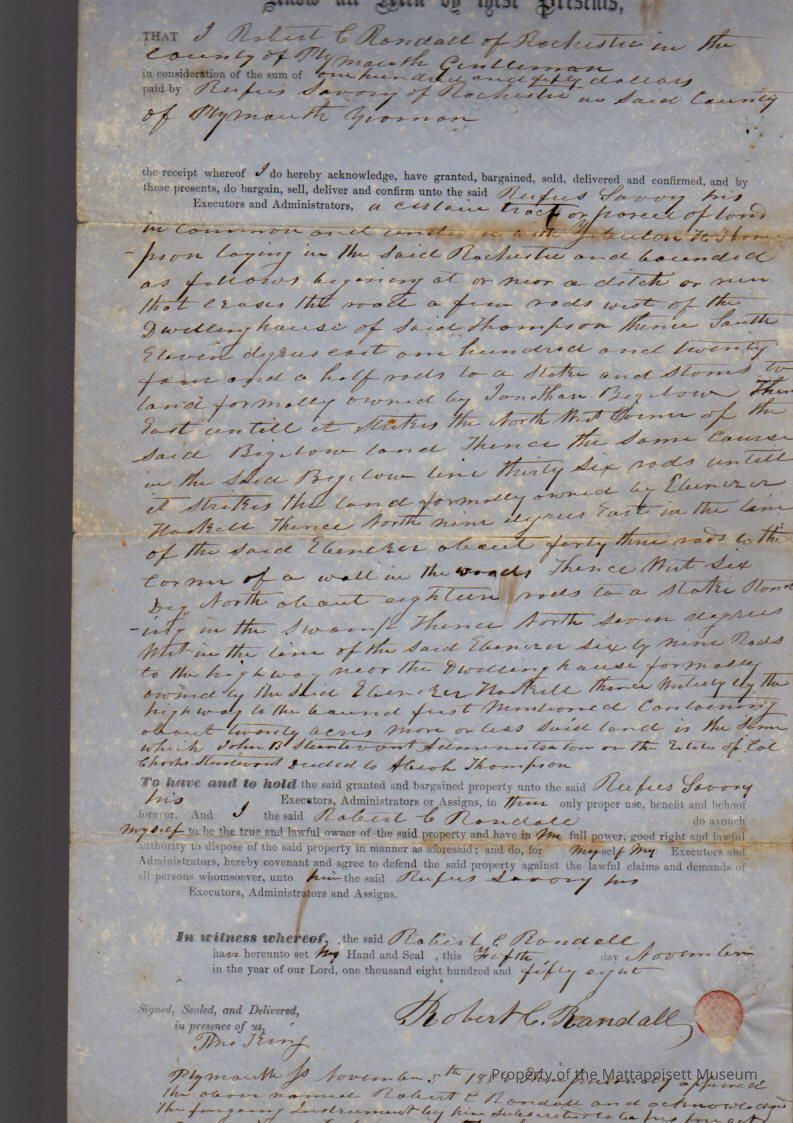 Know all Men by these Presents,
THAT I Robert C Randall of Rochester in the
County of Plymouth Gentleman
in consideration of the sum of one hundred and fifty dollars
paid by Rufus Savory of Rochester in Said County
of Plymouth Yeoman
the receipt whereof I do hereby acknowledge, have granted, bargained, sold, delivered and confirmed, and by
these presents, do bargain, sell, deliver and confirm unto the said Rufus Savory his
Executors and Administrators, a certain tract or parcel of land
in common and with H Thom-
-pson laying in the Said Rochester and bounded
as follows begining at or near a ditch or run
that crosses the road a few rods west of the
Dwelling house of Said Thompson thence South
Eleven degrees east one hundred and twenty
four and a half rods to a stake and stones to
land formally owned by Jonathan Bigelow Then
East untill it strikes the North West Corner of the
Said Bigelow land Thence the Same Course
in the Said Bigelow line thirty Six rods untill
it strikes the land formally owned by Ebenezer
Haskell Thence North nine degrees East in the line
of the Said Ebenezer about forty three rods to the
Corner of a wall in the woods Thence West Six
Deg North about eighteen rods to a stake Stand
-ing in the Swamp Thence North Seven degrees
West in the line of the Said Ebenezer Six by nine Rods
to the highway near the Dwelling house formally
owned by the Said Ebenezer Haskell thence Westerly by the
highway to the bound first Mentioned Containing
about twenty acres more or less Said land is the Same
which John B Sturtevant Administrator on the Estate of Col
Charles Sturtevant Deeded to Thompson
To have and to hold the said granted and bargained property unto the said Rufus Savory
his Executors, Administrators or Assigns, to their only proper use, benefit and behoof
forever. And I the said Robert C Randall do avouch
myself to be the true and lawful owner of the said property and have in me full power, good right and lawful
authority to dispose of the said property in manner as aforesaid: and do, for myself My Executors and
Administrators, hereby covenant and agree to defend the said property against the lawful claims and demands of
all persons whomsoever, unto him the said Rufus Savory his
Executors, Administrators and Assigns.
In witness whereof, the said Robert C Randall
have hereunto set my Hand and Seal , this Fifth day November
in the year of our Lord, one thousand eight hundred and fifty eight
Signed, Sealed, and Delivered,
in presence of us,
Robert C. Randall
Theo King
Plymouth Ss November 5th 18 Then personally appeared
Property of the Mattapoisett Museum
the above named Robert C Randall and acknowledged
the foregoing Instrument by him Subscribed to be his free act